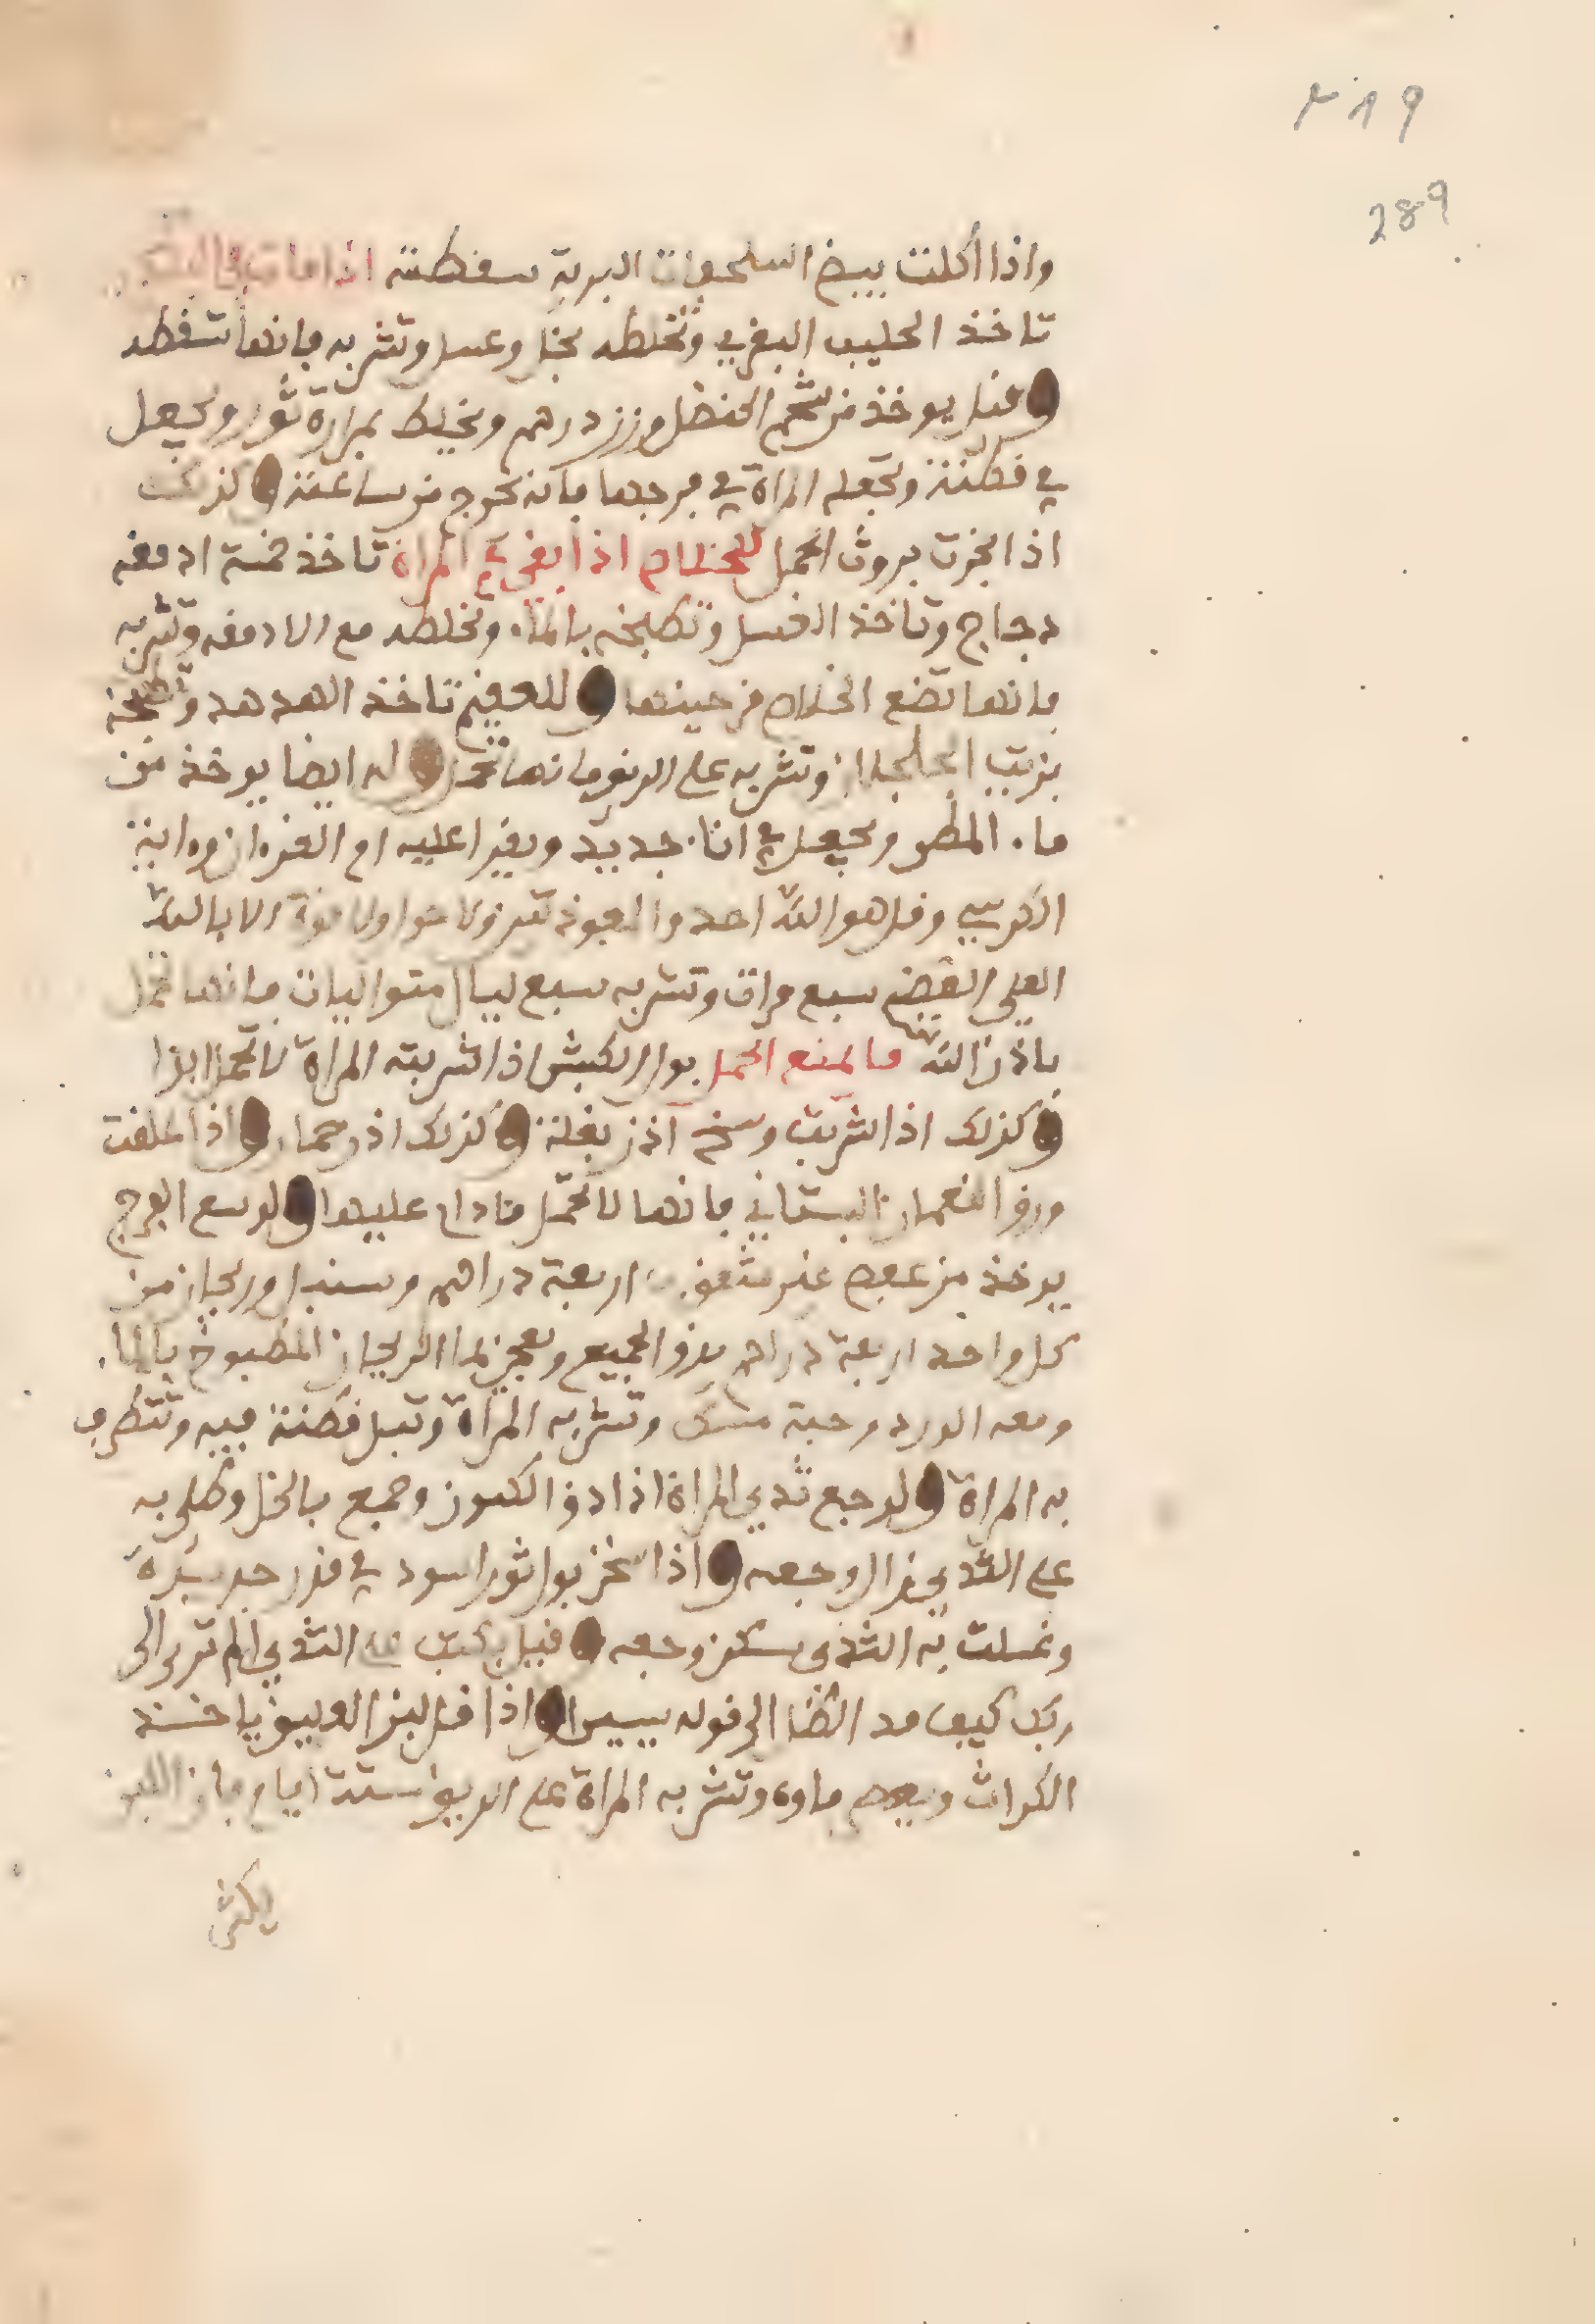 ٢٨٩
289
واذا أكلت بيض السلحبات البرية سفطته اذا مات في
تاخذ الحليب البفري وتخلطه بخل وعسل وتشربه فانها تسفطه
وفيل يوخذ من شحم الحنضل وزن درهم ويخلط بمرارة ثور ويجعل
في فطنة وتجعله المراة في فرجها فانه تخرج من ساعته وكذلك
اذا بخرت بروث الجمل للخلاص اذا بفي في المراة تاخذ خمسة ادمغه
دجاج وتاخذ العسل وتطبخه بالماء وتخلطه مع الادمغه وتشربه
فانها تضع الخلاص من حينها وللعفيم تاخذ الهدهد وتطبخه
بزيت الجلجلان وتشربه على الريق فانها تحمل وله ايضا يوخذ من
ماء المطر ويجعل في اناء جديد ويفرا عليه ام الفرءان وءاية
الكرسي وفل هو الله احد والمعوذتين ولا حول ولا فوة الا بالله
العلي العضيم سبع مرات وتشربه سبع ليال متواليات فانها تحمل
باذن الله ما يمنع الحمل بول الكبش اذا شربته المراة لا تحمل ابدا
وكذلك اذا شربت وسخ اذن بغلة وكذلك اذن حمار واذا علفت
ورق النعمان البستاني فانها لا تحمل ما دام عليها ولوسع الفرج
يوخذ من عفص غير مثفوب اربعة دراهم وسنبل وريحان من
كل واحد اربعة دراهم يدق الجميع ويعجن بماء الريحان المطبوخ بالماء
ومعه الورد وحبة مسك وتشربه المراة وتبل فطنة فيه وتتطرف
به المراة ولوجع ثدي المراة اذا دق الكمون وجمع بالخل وطلي به
على الثدي يزال وجعه واذا سخن بول ثور اسود في فدر جديدة
وغسلت به الثدي يسكن وجعه وفيل يكتب على الثدي الم تر الى
ربك كيف مد الظل الى فوله يسيرا واذا فل لبن المراة ياخذ
الكراث ويعصر ماوه وتشربه المراة على الريق ستة ايام فان اللبن
يكثر